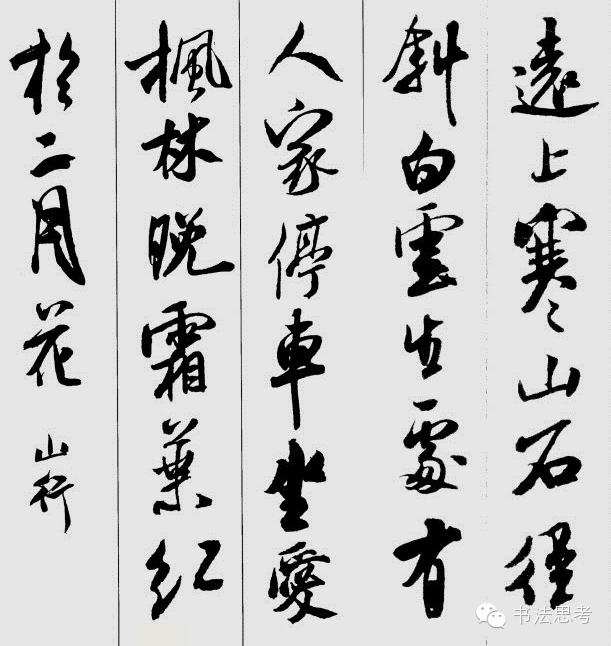 遠上寒山石徑
斜白雲生處有
人家停車坐愛
楓林晚霜葉紅
於二月花 山行
书法思考